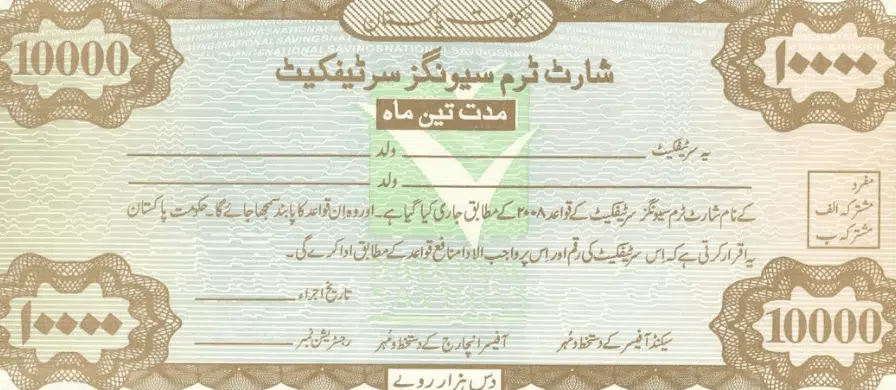 حکومت پاکستان
NATIONAL SAVINGS NATIONAL SAVINGS
10000
۱۰۰۰۰
شارٹ ٹرم سیونگز سرٹیفکیٹ
مدت تین ماہ
یہ سرٹیفکیٹ ولد
ولد
مفرد
مشترکہ الف
مشترکہ ب
کے نام شارٹ ٹرم سیونگز سرٹیفکیٹ کے قواعد ۲۰۰۸ کے مطابق جاری کیا گیا ہے۔ اور وہ ان قواعد کا پابند سمجھا جائے گا۔ حکومت پاکستان
یہ اقرار کرتی ہے کہ اِس سرٹیفکیٹ کی رقم اور اس پر واجب الادا منافع قواعد کے مطابق ادا کرے گی۔
تاریخ اجراء
سیکنڈ آفیسر کے دستخط و مُہر آفیسر انچارج کے دستخط و مُہر رجسٹریشن نمبر
۱۰۰۰۰
10000
دس ہزار روپے